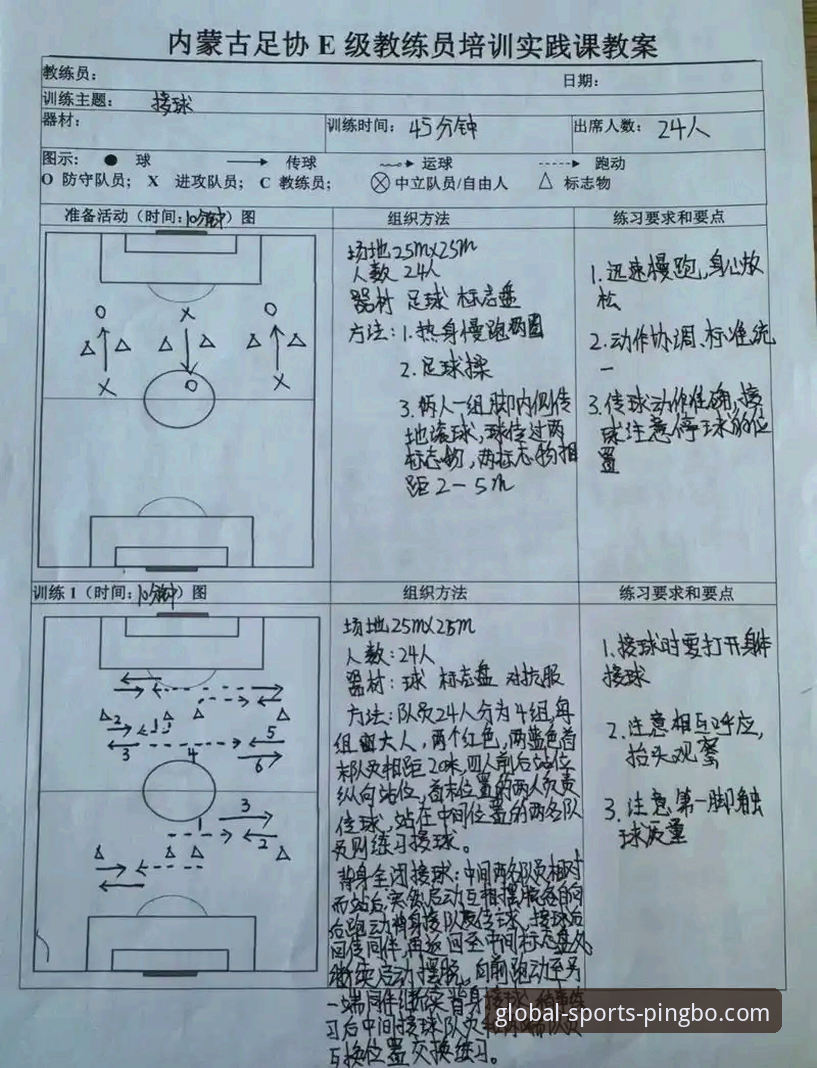 内蒙古足协 E 级教练员培训实践课教案
教练员: 日期:
训练主题: 接球
器材: 训练时间: 45分钟 出席人数: 24人
图示: ● 球 传球 运球 跑动
O 防守队员; X 进攻队员; C 教练员; 中立队员/自由人 △ 标志物
准备活动（时间:10分钟）图 组织方法 练习要求和要点
场地25m×25m
人数 24人
器材 足球 标志盘
方法: 1.热身慢跑两圈
2.足球操
3.俩人一组脚内侧传
地滚球,球传过两
标志物,两标志物相
距2-5m
1.迅速慢跑,身心放
松
2.动作协调、标准统
一
3.传球动作准确,接
球注意停球的位
置
O X O
X O X
训练 1（时间:10分钟）图 组织方法 练习要求和要点
场地25m×25m
人数:24人
器材:球 标志盘 对抗服
方法:队员24人分为4组,每
组六人,两个红色,两蓝色首
末队员相距20米,四人前后站位
纵向站位,首末位置的两人负责
传球,站在中间位置的两名队
员则练习接球。
背身全闭接球:中间两名队员相对
而站后,突然启动互相摆脱各自向
后跑动背身接队友传球,接球后
回传同伴,再返回至中间标志盘处
继续启动摆脱,向前跑动至另
一端同伴继续背身接球
习后中间接球队员
互换位置交换练习。
1.接球时要打开身体
接球
2.注意相互呼应,
抬头观察
3.注意第一脚触
球质量
2 1
3 4 5
6
3
1
2
global-sports-pingbo.com